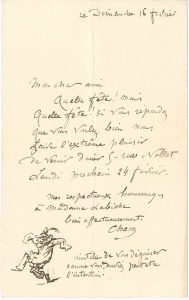 ce Dimanche 16 février
Mon cher ami
Quelle fête ! mais
quelle fête ! si vous répondez
que vous voulez bien nous
faire l'extrême plaisir
de venir diner 5 rue Nollet
Lundi prochain 24 février.
mes respectueux hommages
à Madame Labiche
bien affectueusement.
Cham
inutile de vous déguiser
comme vous
l'intention.